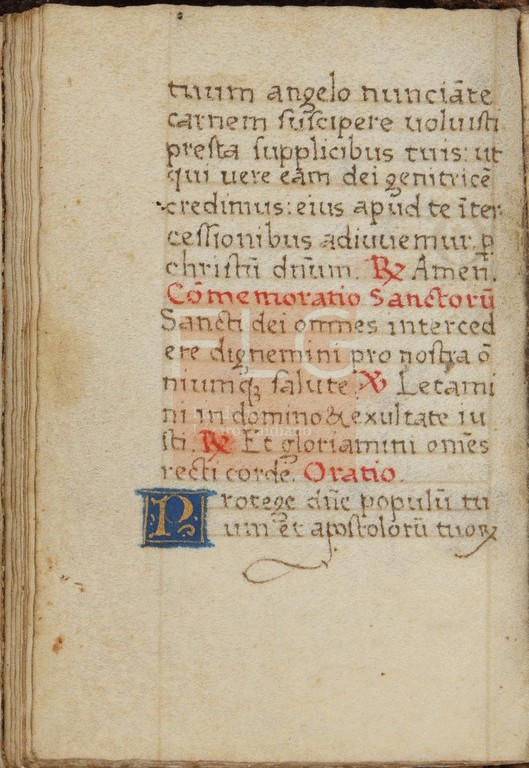 tuum angelo nunciāte
carnem suscipere uoluisti
presta supplicibus tuis: ut
qui uere eam dei genitricē
credimus: eius apud te īter
cessionibus adiuuemur. ꝑ
christū dn̄um. ℟ Amen.
Cōmemoratio Sanctorū
Sancti dei omnes interced
ere dignemini pro nostra ō
niumqꝫ salute. ℣ Letami
ni in domino & exultate iu
sti. ℟ Et gloriamini om̄es
recti corde. Oratio.
Protege dn̄e populū tu
um et apostolorū tuoꝝ
FLG